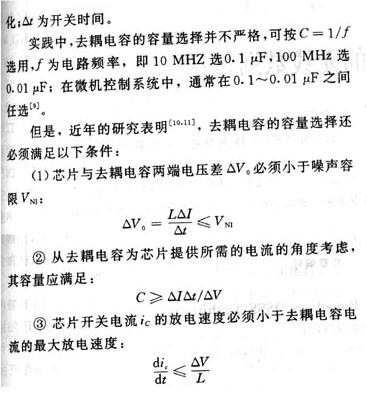 化;Δt 为开关时间。
实践中,去耦电容的容量选择并不严格,可按 C=1/f
选用,f 为电路频率，即 10 MHZ 选0.1 μF,100 MHz 选
0.01 μF; 在微机控制系统中，通常在 0.1～0.01 μF 之间
任选[9]。
但是，近年的研究表明[10,11]，去耦电容的容量选择还
必须满足以下条件：
(1)芯片与去耦电容两端电压差 ΔV₀必须小于噪声容
限 V_NI:
ΔV₀ = LΔI/Δt ≤ V_NI
② 从去耦电容为芯片提供所需的电流的角度考虑，
其容量应满足：
C ≥ ΔIΔt/ΔV
③ 芯片开关电流 i_c 的放电速度必须小于去耦电容电
流的最大放电速度：
di_c/dt ≤ ΔV/L